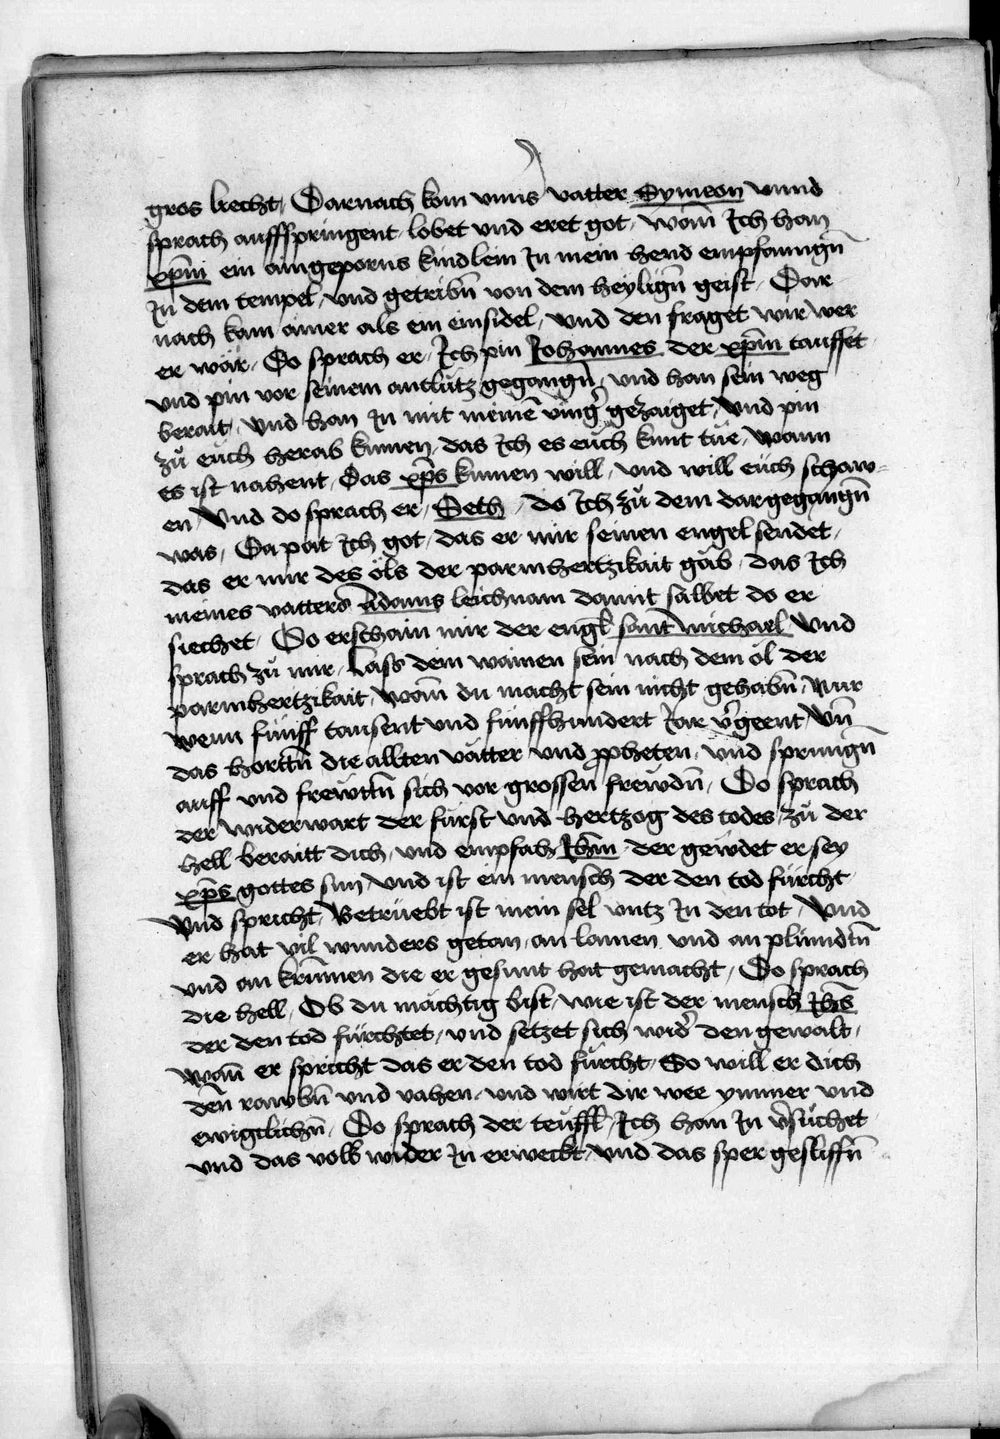 gros liecht / Darnach kom vnns vatter Symeon vnnd
sprach auffspringent lobet vnd eret got / wann̄ Ich han
xp̄m ein aingeporns kindlein In mein hend empfanngn̄
In dem tempel / vnd getribn̄ von dem heylign̄ geist / Dar
nach kam ainer als ein einsidel / vnd den fraget wir wer
er wär / Do sprach er / Ich pin Johannes der xp̄m tauffet
vnd pin vor seinem antlütz gegangn̄ / vnd han sein weg
berait / vnd han In mit meinē ving̾ gezaiget / vnd pin
zů euch herab kumen / das Ich es euch kunt tue / wann
es ist nahent / Das xp̄s kumen will / vnd will euch schaw=
en / Vnd do sprach er / Seth / do Ich zů dem dargegangn̄
was / Da pat Ich got / das er mir seinen engel sendet /
das er mir des öls der parmhertzikait gäb / das Ich
meines vatters Adams leichnam damit salbet do er
siechet / Do erschain mir der engl̄ sant michael vnd
sprach zů mir / Lass dein wainen sein nach dem öl der
parmhertzikait / wann̄ du macht sein nicht gehabn̄ / Nur
wenn fünff tausent vnd fünffhundert Jar v̾geent / vn̄
das hortn̄ die allten vätter vnd ꝓpheten / vnd sprungn̄
auff vnd frewtn̄ sich vor grossen frewdn̄ / Do sprach
der widerwart der fürst vnd hertzog des todes / zů der
hell beraitt dich / vnd empfach Jh̄m der gewdet er sey
xp̄s gottes sun / vnd ist ein mensch der den tod fürcht
vnd spricht / Betruebt ist mein sel vntz In den tot / Vnd
er hat vil wunders getan / an lamen vnd an plinndtn̄
vnd an krūmen die er gesunt hat gemacht / Do sprach
die hell / Ob du mächtig bist / wie ist der mensch Jh̄s
der den tod fürchtet / vnd setzet sich wid̾ den gewalt /
wann̄ er spricht das er den tod fürcht / So will er dich
den̄ rawbn̄ vnd vahen / vnd wirt dir wee ymmer vnd
ewigclichn̄ / Do sprach der teuffl̄ / Ich han In v̾suchet
vnd das volk wider In erweckt / vnd das sper gesliffn̄